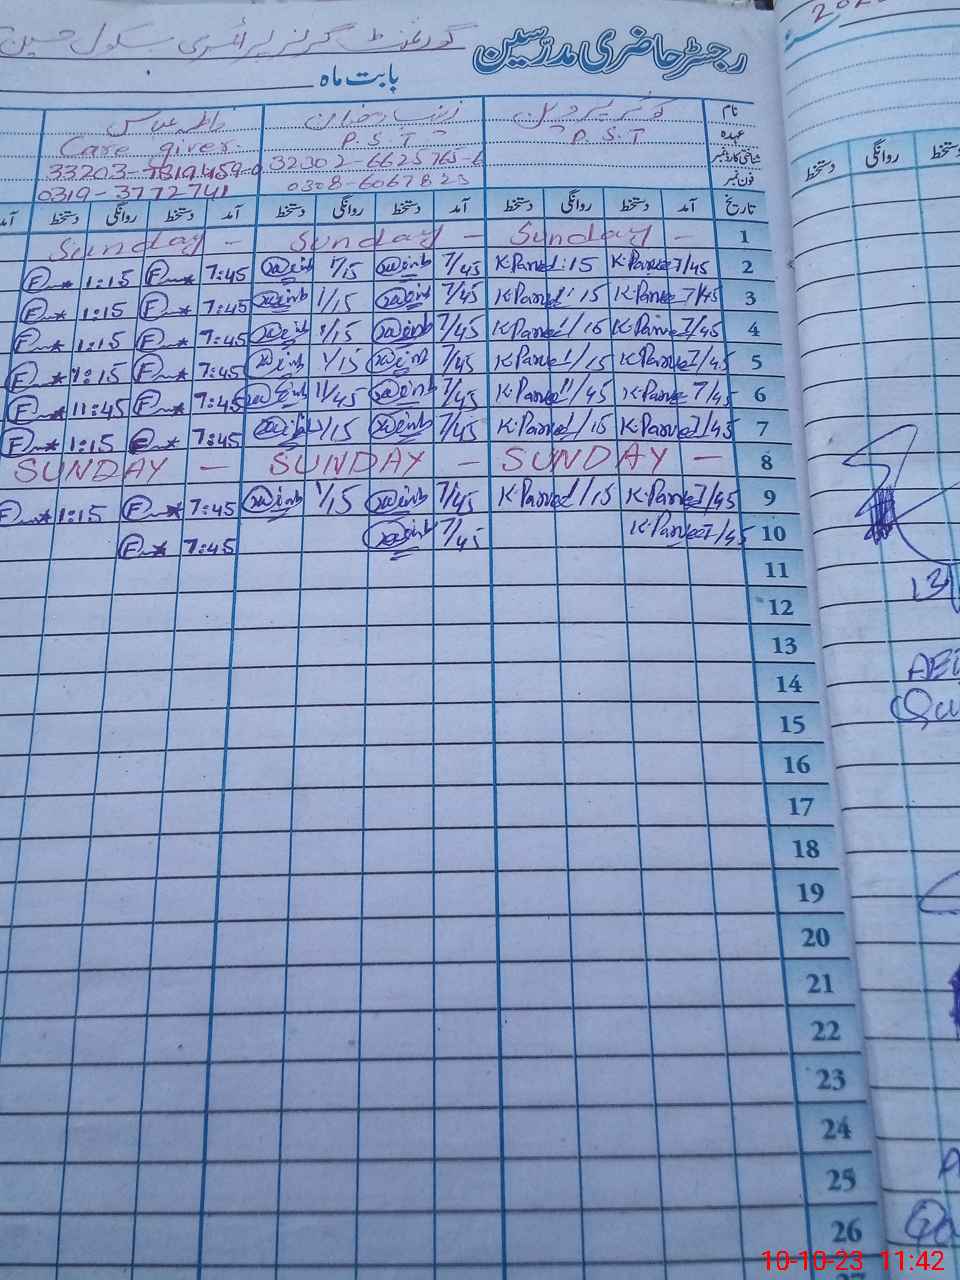 رجسٹر حاضری مدرسین
گورنمنٹ گرلز پرائمری سکول حسین
بابت ماہ
نام
عہدہ P.S.T P.S.T Care giver
شناختی کارڈ نمبر 32302-6625765-6
فون نمبر 0308-6067823 0319-3772741
تاریخ آمد دستخط روانگی دستخط آمد دستخط روانگی دستخط آمد دستخط روانگی دستخط آمد
1 Sunday - Sunday - Sunday -
2 7/45 K.Parve 1:15 K.Parve 7/45 Zainb 1/15 Zainb 7:45 F 1:15 F
3 7/45 K.Parve 1:15 K.Parve 7/45 Zainb 1/15 Zainb 7:45 F 1:15 F
4 7/45 K.Parve 1/15 K.Parve 7/45 Zainb 1/15 Zainb 7:45 F 1:15 F
5 7/45 K.Parve 1/15 K.Parve 7/45 Zainb 1/15 Zainb 7:45 F 1:15 F
6 7/45 K.Parve 11/45 K.Parve 7/45 Zainb 11/45 Zainb 7:45 F 11:45 F
7 7/45 K.Parve 1/15 K.Parve 7/45 Zainb 1/15 Zainb 7:45 F 1:15 F
8 SUNDAY - SUNDAY - SUNDAY -
9 7/45 K.Parve 1/15 K.Parve 7/45 Zainb 1/15 Zainb 7:45 F 1:15 F
10 7/45 K.Parve 7/45 Zainb 7:45 F
11
12
13
14
15
16
17
18
19
20
21
22
23
24
25
26
دستخط روانگی دستخط
10-10-23 11:42